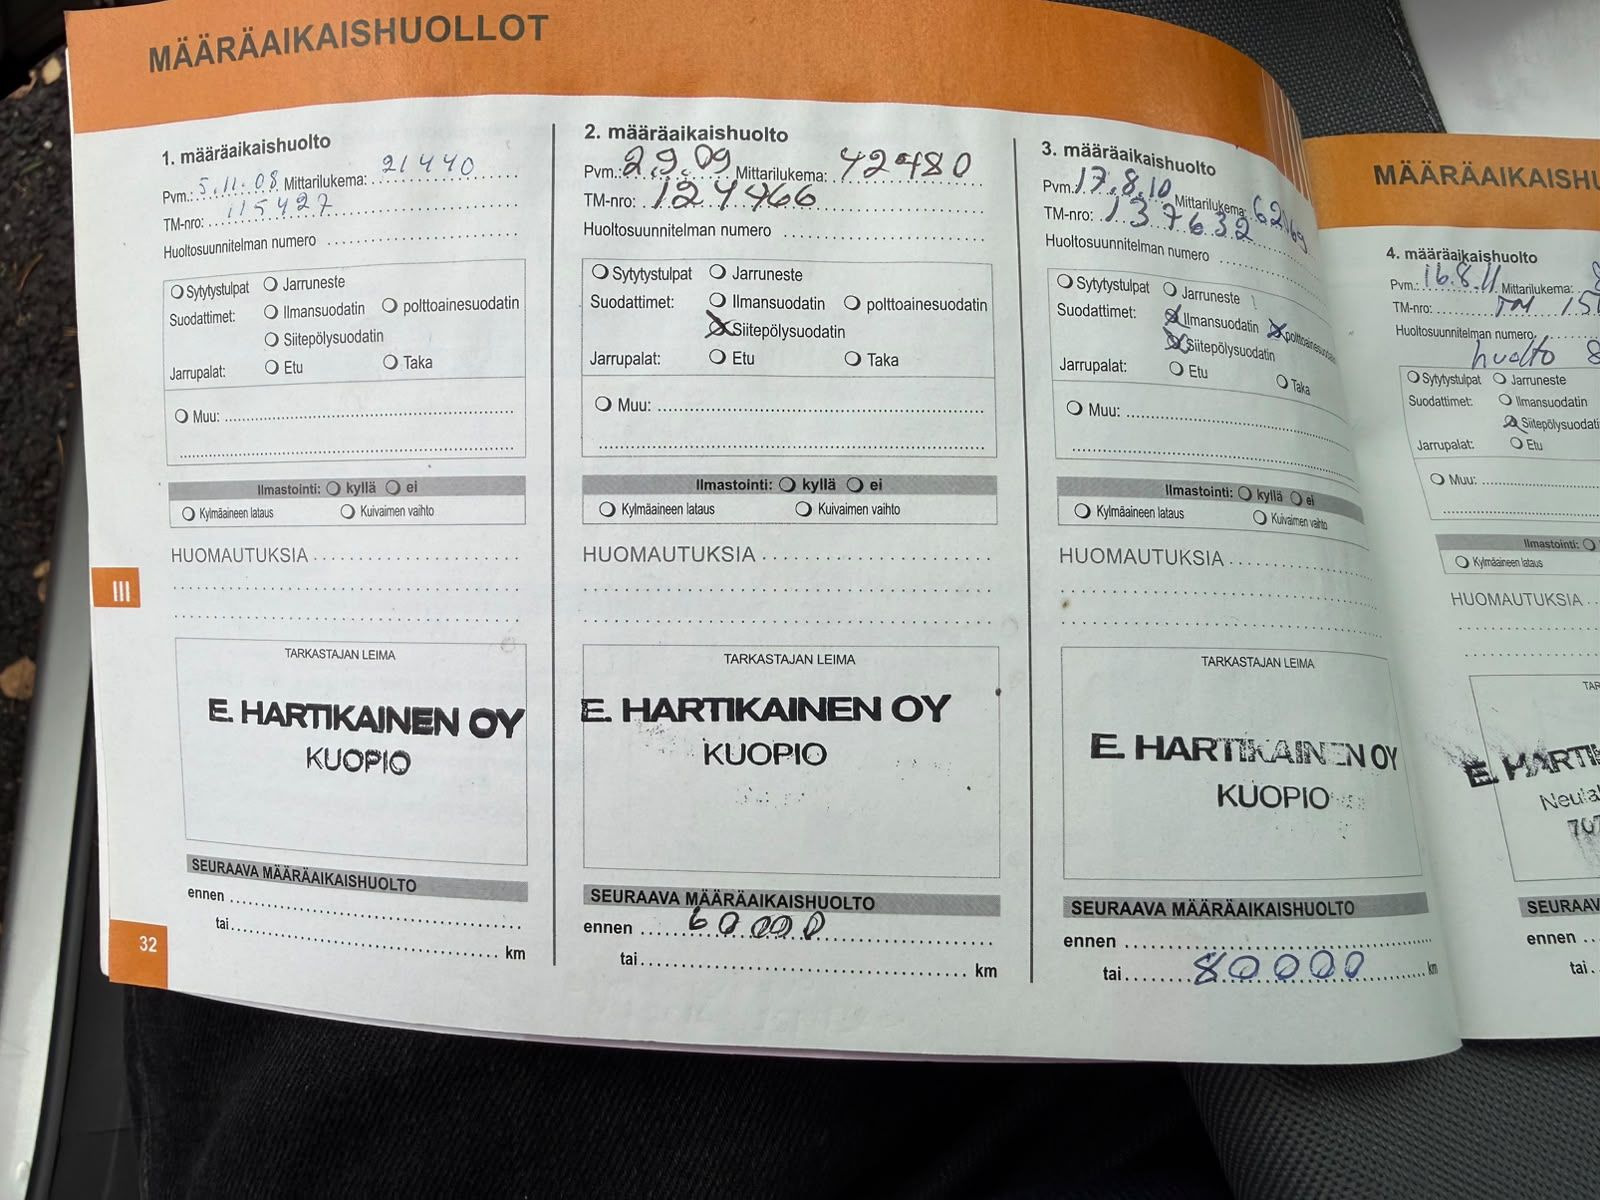 MÄÄRÄAIKAISHUOLLOT
1. määräaikaishuolto
Pvm.: 5.11.08 Mittarilukema: 21440
TM-nro: 115427
Huoltosuunnitelman numero
Sytytystulpat Jarruneste
Suodattimet: Ilmansuodatin polttoainesuodatin
Siitepölysuodatin
Jarrupalat: Etu Taka
Muu:
Ilmastointi: kyllä ei
Kylmäaineen lataus Kuivaimen vaihto
HUOMAUTUKSIA
TARKASTAJAN LEIMA
E. HARTIKAINEN OY
KUOPIO
SEURAAVA MÄÄRÄAIKAISHUOLTO
ennen
tai km
III
32
2. määräaikaishuolto
Pvm.: 2.9.09 Mittarilukema: 42480
TM-nro: 124466
Huoltosuunnitelman numero
Sytytystulpat Jarruneste
Suodattimet: Ilmansuodatin polttoainesuodatin
Siitepölysuodatin
Jarrupalat: Etu Taka
Muu:
Ilmastointi: kyllä ei
Kylmäaineen lataus Kuivaimen vaihto
HUOMAUTUKSIA
TARKASTAJAN LEIMA
E. HARTIKAINEN OY
KUOPIO
SEURAAVA MÄÄRÄAIKAISHUOLTO
ennen 60000
tai km
3. määräaikaishuolto
Pvm.: 17.8.10 Mittarilukema:
TM-nro: 137632
Huoltosuunnitelman numero
Sytytystulpat Jarruneste
Suodattimet: Ilmansuodatin polttoainesuodatin
Siitepölysuodatin
Jarrupalat: Etu Taka
Muu:
Ilmastointi: kyllä ei
Kylmäaineen lataus Kuivaimen vaihto
HUOMAUTUKSIA
TARKASTAJAN LEIMA
E. HARTIKAINEN OY
KUOPIO
SEURAAVA MÄÄRÄAIKAISHUOLTO
ennen
tai 80000 km
MÄÄRÄAIKAISHU
4. määräaikaishuolto
Pvm.: 16.8.11 Mittarilukema: 8
TM-nro: TM 15
Huoltosuunnitelman numero
huolto 8
Sytytystulpat Jarruneste
Suodattimet: Ilmansuodatin
Siitepölysuodati
Jarrupalat: Etu
Muu:
Ilmastointi:
Kylmäaineen lataus
HUOMAUTUKSIA
TAR
E. HARTI
Neula
707
SEURAAV
ennen
tai